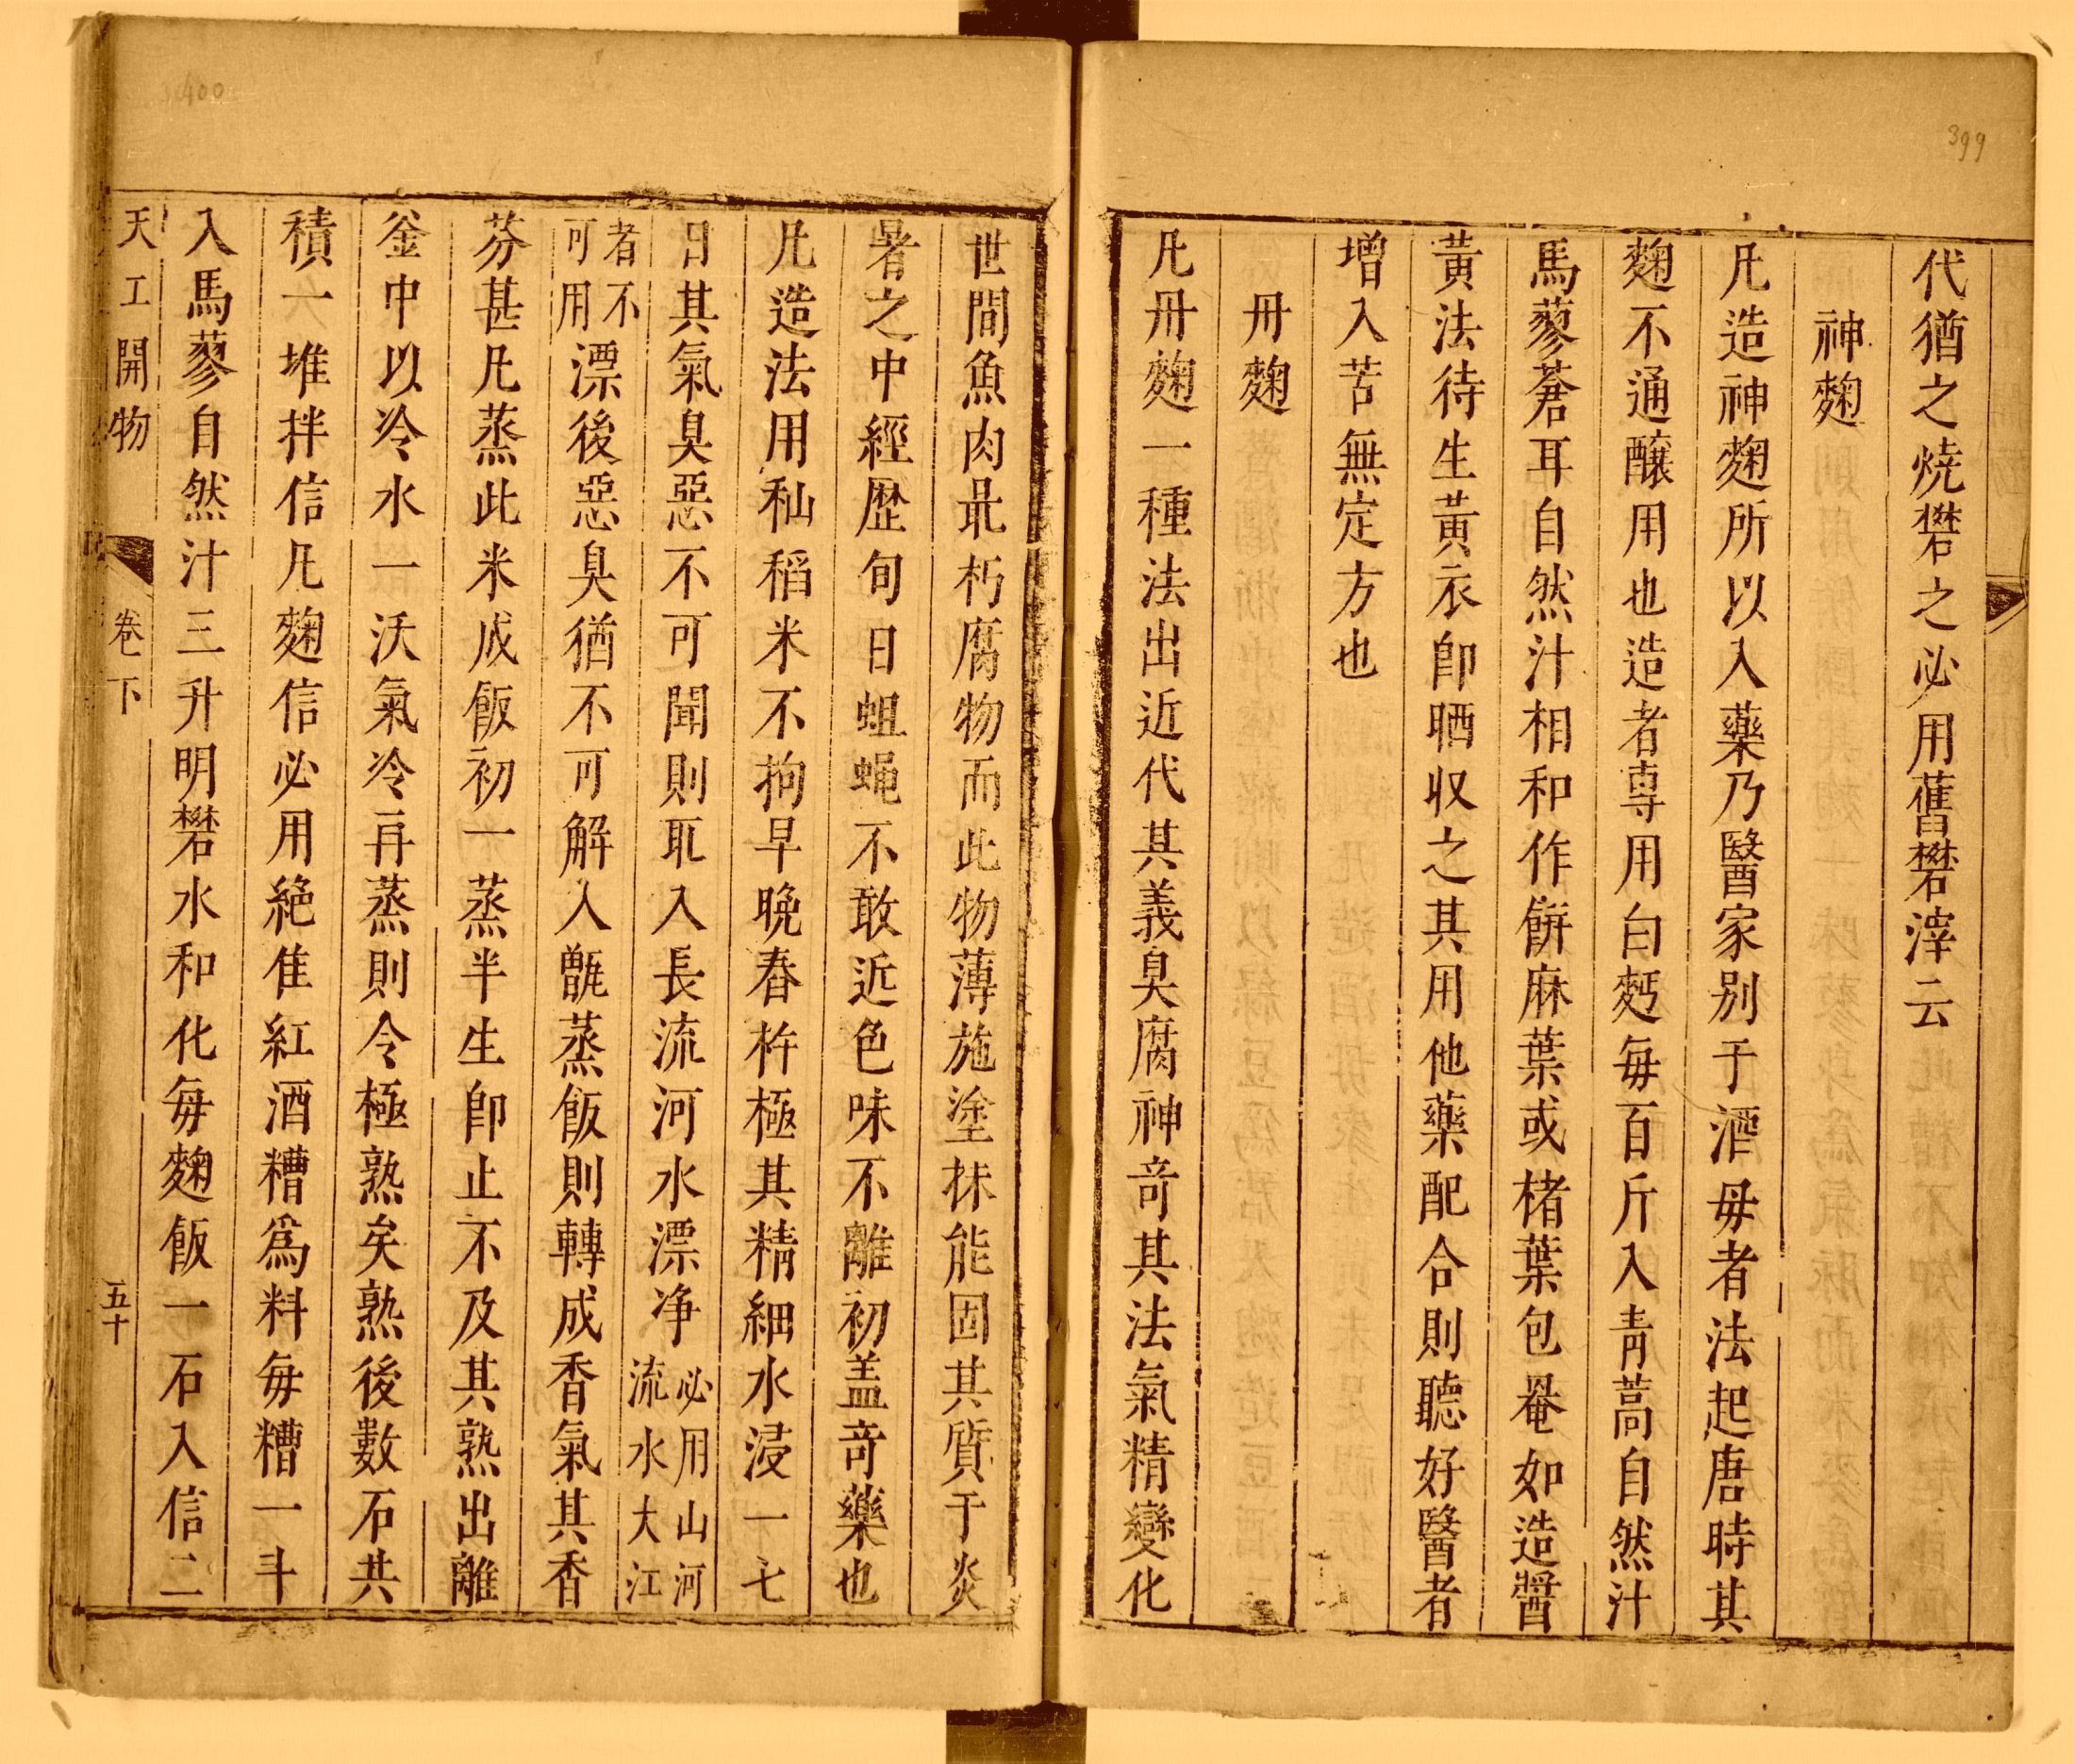 399
代猶之燒礬之必用舊礬滓云
神麴
凢造神麴所以入藥乃醫家别于酒毋者法起唐時其
麴不通釀用也造者専用白麫每百斤入靑蒿自然汁
馬蓼蒼耳自然汁相和作餅麻葉或楮葉包罨如造醬
黃法待生黃衣卽晒収之其用他藥配合則聽好醫者
增入苦無定方也
丹麴
凢丹麴一種法出近代其義臭腐神竒其法氣精變化
世間魚肉最朽腐物而此物薄施塗抹能固其質于炎
暑之中經歷旬日蛆蝇不敢近色味不離初盖竒藥也
凢造法用秈稻米不拘早晚舂杵極其精細水浸一七
日其氣臭惡不可聞則取入長流河水漂净必用山河流水大江
者不可用漂後惡臭猶不可解入甑蒸飯則轉成香氣其香
芬甚凢蒸此米成飯初一蒸半生卽止不及其熟出離
釜中以冷水一沃氣冷再蒸則令極熟矣熟後數石共
積一堆拌信凢麴信必用絶隹紅酒糟爲料每糟一斗
入馬蓼自然汁三升明礬水和化每麴飯一石入信二
天工開物 卷下 五十
400